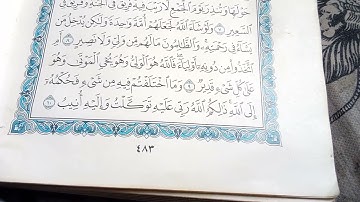 حَوْلَهَا وَتُنذِرَ يَوْمَ ٱلْجَمْعِ لَا رَيْبَ فِيهِ فَرِيقٌ فِى ٱلْجَنَّةِ وَفَرِيقٌ فِى
ٱلسَّعِيرِ ٧ وَلَوْ شَآءَ ٱللَّهُ لَجَعَلَهُمْ أُمَّةً وَٰحِدَةً وَلَٰكِن يُدْخِلُ مَن
يَشَآءُ فِى رَحْمَتِهِۦ وَٱلظَّٰلِمُونَ مَا لَهُم مِّن وَلِىٍّ وَلَا نَصِيرٍ ٨ أَمِ
ٱتَّخَذُوا۟ مِن دُونِهِۦٓ أَوْلِيَآءَ فَٱللَّهُ هُوَ ٱلْوَلِىُّ وَهُوَ يُحْىِ ٱلْمَوْتَىٰ وَهُوَ
عَلَىٰ كُلِّ شَىْءٍ قَدِيرٌ ٩ وَمَا ٱخْتَلَفْتُمْ فِيهِ مِن شَىْءٍ فَحُكْمُهُۥٓ
إِلَى ٱللَّهِ ذَٰلِكُمُ ٱللَّهُ رَبِّى عَلَيْهِ تَوَكَّلْتُ وَإِلَيْهِ أُنِيبُ ١٠
٤٨٣